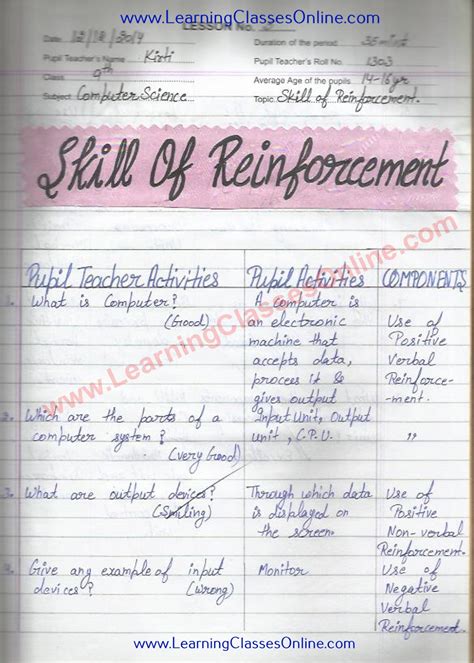 www.LearningClassesOnline.com
LESSON No.
Date 12/18/2014 Duration of the period 35 mint
Pupil Teacher's Name Kirti Pupil Teacher's Roll No. 1303
Class 9th Average Age of the pupils 14-16yr
Subject Computer Science Topic Skill of Reinforcement.
Skill Of Reinforcement
Pupil Teacher Activities Pupil Activities COMPONENTS
1. What is Computer? A computer is
(Good) an electronic Use of
machine that Positive
accepts data, Verbal
process it & Reinforce-
gives output -ment.
2. Which are the parts of a Input Unit, Output
computer system? unit, C.P.U. ,,
(Very Good)
3. What are output devices? Through which data Use of
(Smiling) is displayed on Positive
the screen. Non-verbal
Reinforcement.
4. Give any example of input Monitor Use of
devices? (wrong) Negative
Verbal
Reinforcement.
www.LearningClassesOnline.com
www.LearningClassesOnline.com